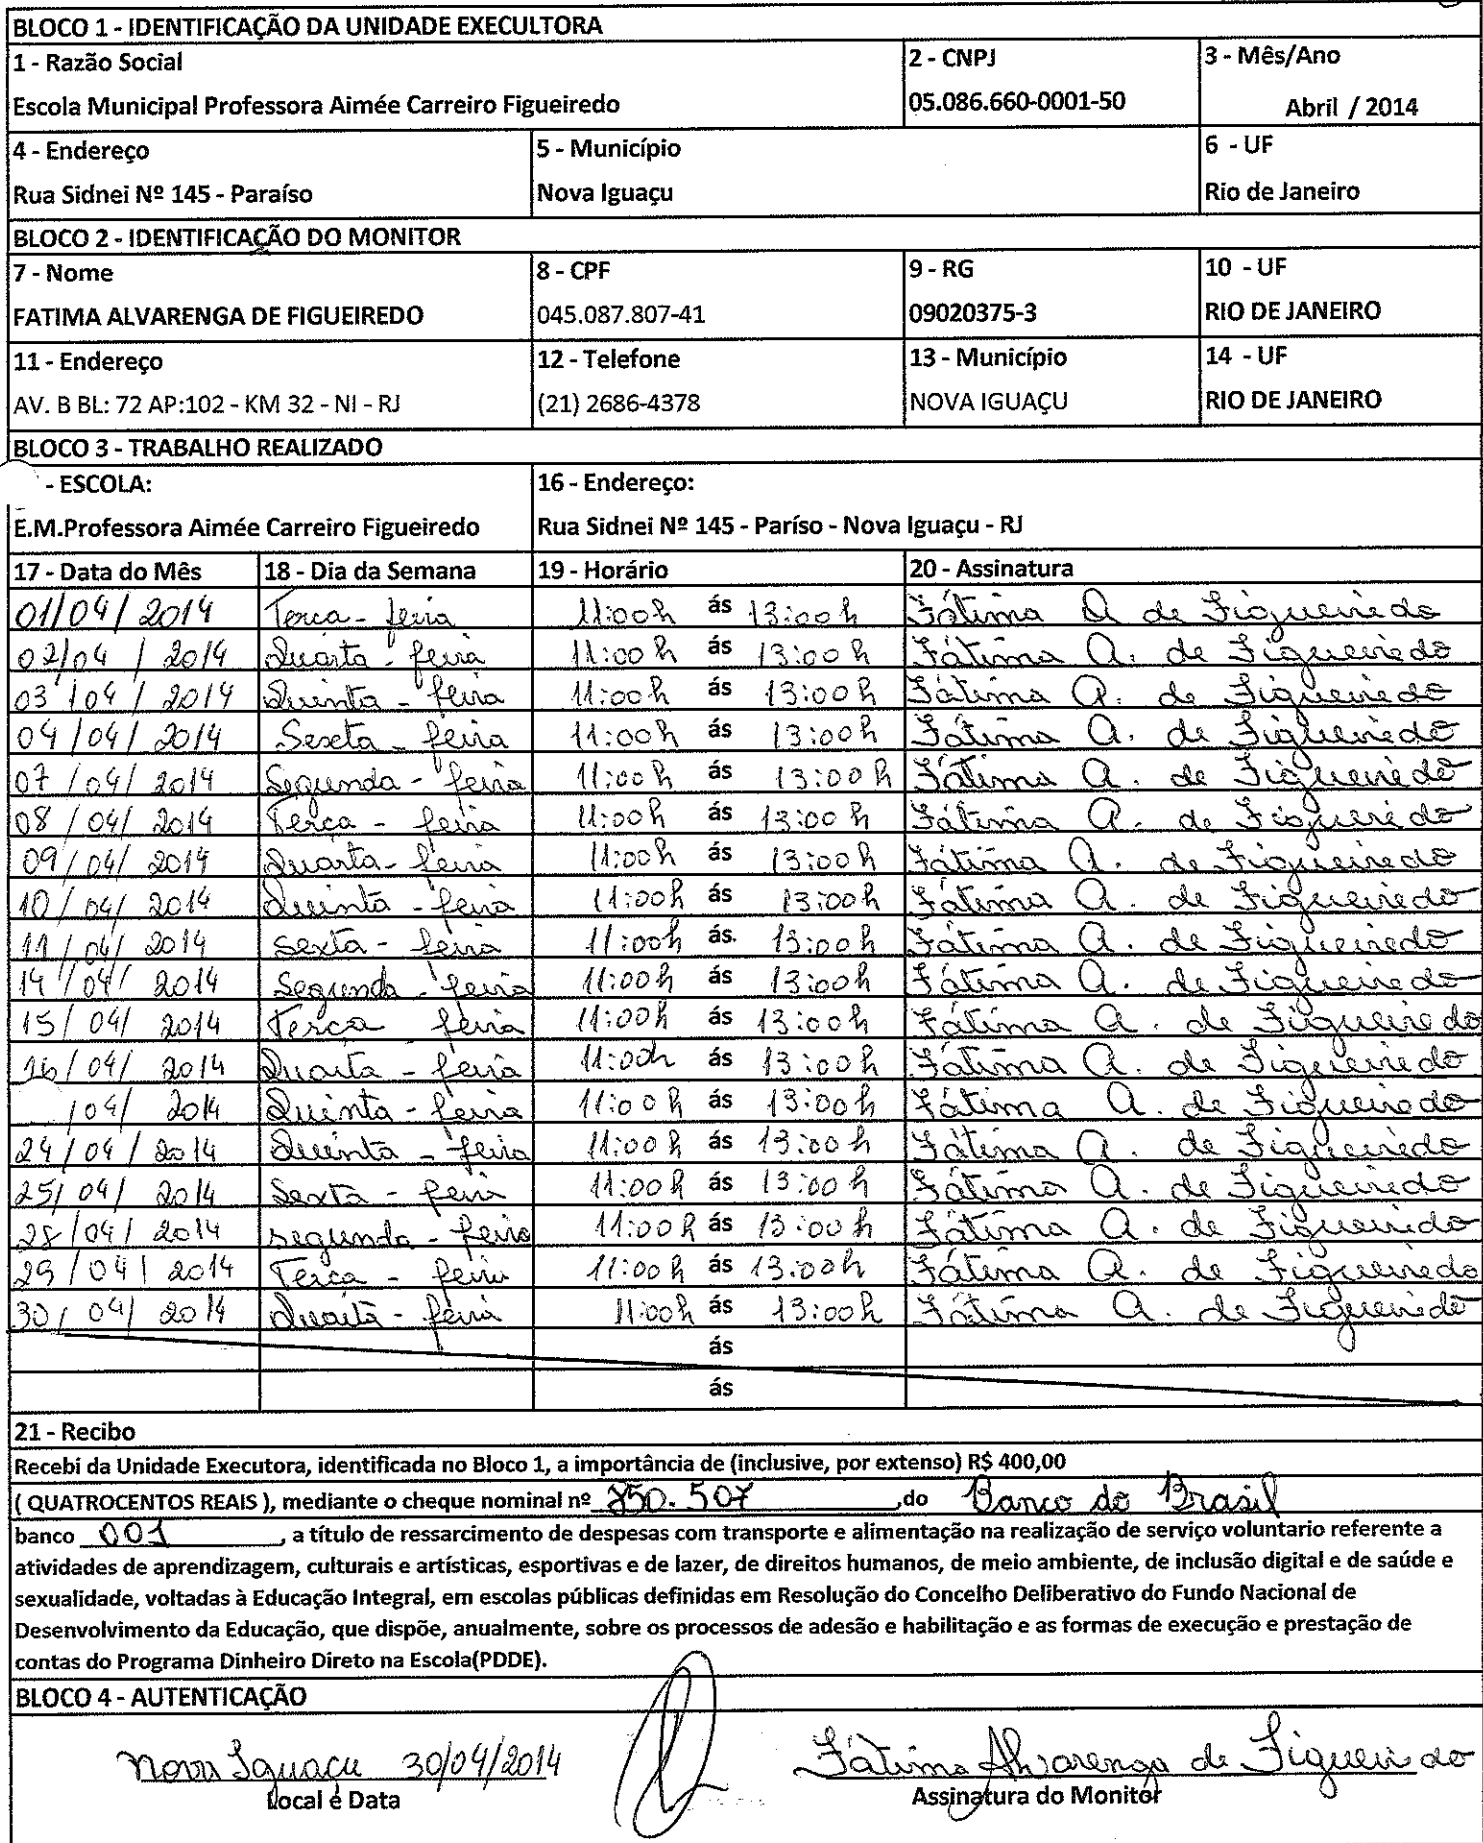 BLOCO 1 - IDENTIFICAÇÃO DA UNIDADE EXECULTORA
1 - Razão Social 2 - CNPJ 3 - Mês/Ano
Escola Municipal Professora Aimée Carreiro Figueiredo 05.086.660-0001-50 Abril / 2014
4 - Endereço 5 - Município 6 - UF
Rua Sidnei Nº 145 - Paraíso Nova Iguaçu Rio de Janeiro
BLOCO 2 - IDENTIFICAÇÃO DO MONITOR
7 - Nome 8 - CPF 9 - RG 10 - UF
FATIMA ALVARENGA DE FIGUEIREDO 045.087.807-41 09020375-3 RIO DE JANEIRO
11 - Endereço 12 - Telefone 13 - Município 14 - UF
AV. B BL: 72 AP:102 - KM 32 - NI - RJ (21) 2686-4378 NOVA IGUAÇU RIO DE JANEIRO
BLOCO 3 - TRABALHO REALIZADO
- ESCOLA: 16 - Endereço:
E.M.Professora Aimée Carreiro Figueiredo Rua Sidnei Nº 145 - Paríso - Nova Iguaçu - RJ
17 - Data do Mês 18 - Dia da Semana 19 - Horário 20 - Assinatura
01/04/2014 Terca - feira 11:00h ás 13:00h Fátima A de Figueiredo
02/04/2014 Quarta - feira 11:00h ás 13:00h Fátima A. de Figueiredo
03/04/2014 Quinta - feira 11:00h ás 13:00h Fátima A. de Figueiredo
04/04/2014 Sexta - feira 11:00h ás 13:00h Fátima A. de Figueiredo
07/04/2014 Segunda - feira 11:00h ás 13:00h Fátima A. de Figueiredo
08/04/2014 Terça - feira 11:00h ás 13:00h Fátima A. de Figueiredo
09/04/2014 Quarta - feira 11:00h ás 13:00h Fátima A. de Figueiredo
10/04/2014 Quinta - feira 11:00h ás 13:00h Fátima A. de Figueiredo
11/04/2014 Sexta - feira 11:00h ás. 13:00h Fátima A. de Figueiredo
14/04/2014 Segunda - feira 11:00h ás 13:00h Fátima A. de Figueiredo
15/04/2014 Terça feira 11:00h ás 13:00h Fátima A. de Figueiredo
16/04/2014 Quarta - feira 11:00h ás 13:00h Fátima A. de Figueiredo
/04/2014 Quinta - feira 11:00h ás 13:00h Fátima A. de Figueiredo
24/04/2014 Quinta - feira 11:00h ás 13:00h Fátima A. de Figueiredo
25/04/2014 Sexta - feira 11:00h ás 13:00h Fátima A. de Figueiredo
28/04/2014 segunda - feira 11:00h ás 13:00h Fátima A. de Figueiredo
29/04/2014 Terça - feira 11:00h ás 13:00h Fátima A. de Figueiredo
30/04/2014 Quarta - feira 11:00h ás 13:00h Fátima A. de Figueiredo
ás
ás
21 - Recibo
Recebi da Unidade Executora, identificada no Bloco 1, a importância de (inclusive, por extenso) R$ 400,00
( QUATROCENTOS REAIS ), mediante o cheque nominal nº 850.507 ,do Banco do Brasil
banco 001 , a título de ressarcimento de despesas com transporte e alimentação na realização de serviço voluntario referente a
atividades de aprendizagem, culturais e artísticas, esportivas e de lazer, de direitos humanos, de meio ambiente, de inclusão digital e de saúde e
sexualidade, voltadas à Educação Integral, em escolas públicas definidas em Resolução do Concelho Deliberativo do Fundo Nacional de
Desenvolvimento da Educação, que dispõe, anualmente, sobre os processos de adesão e habilitação e as formas de execução e prestação de
contas do Programa Dinheiro Direto na Escola(PDDE).
BLOCO 4 - AUTENTICAÇÃO
Nova Iguaçu 30/04/2014 Fátima Alvarenga de Figueiredo
Local e Data Assinatura do Monitor